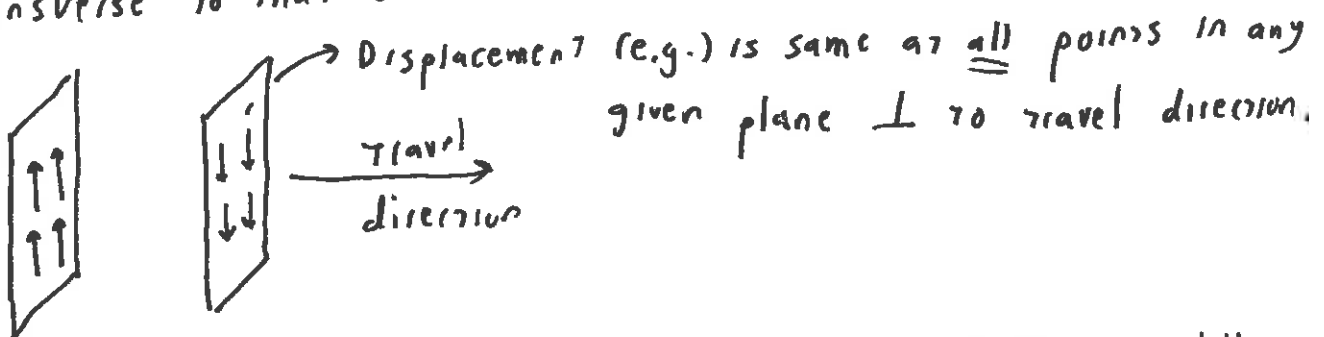 Displacement (e.g.) is same at all points in any
given plane ⊥ to travel direction.
Travel
direction